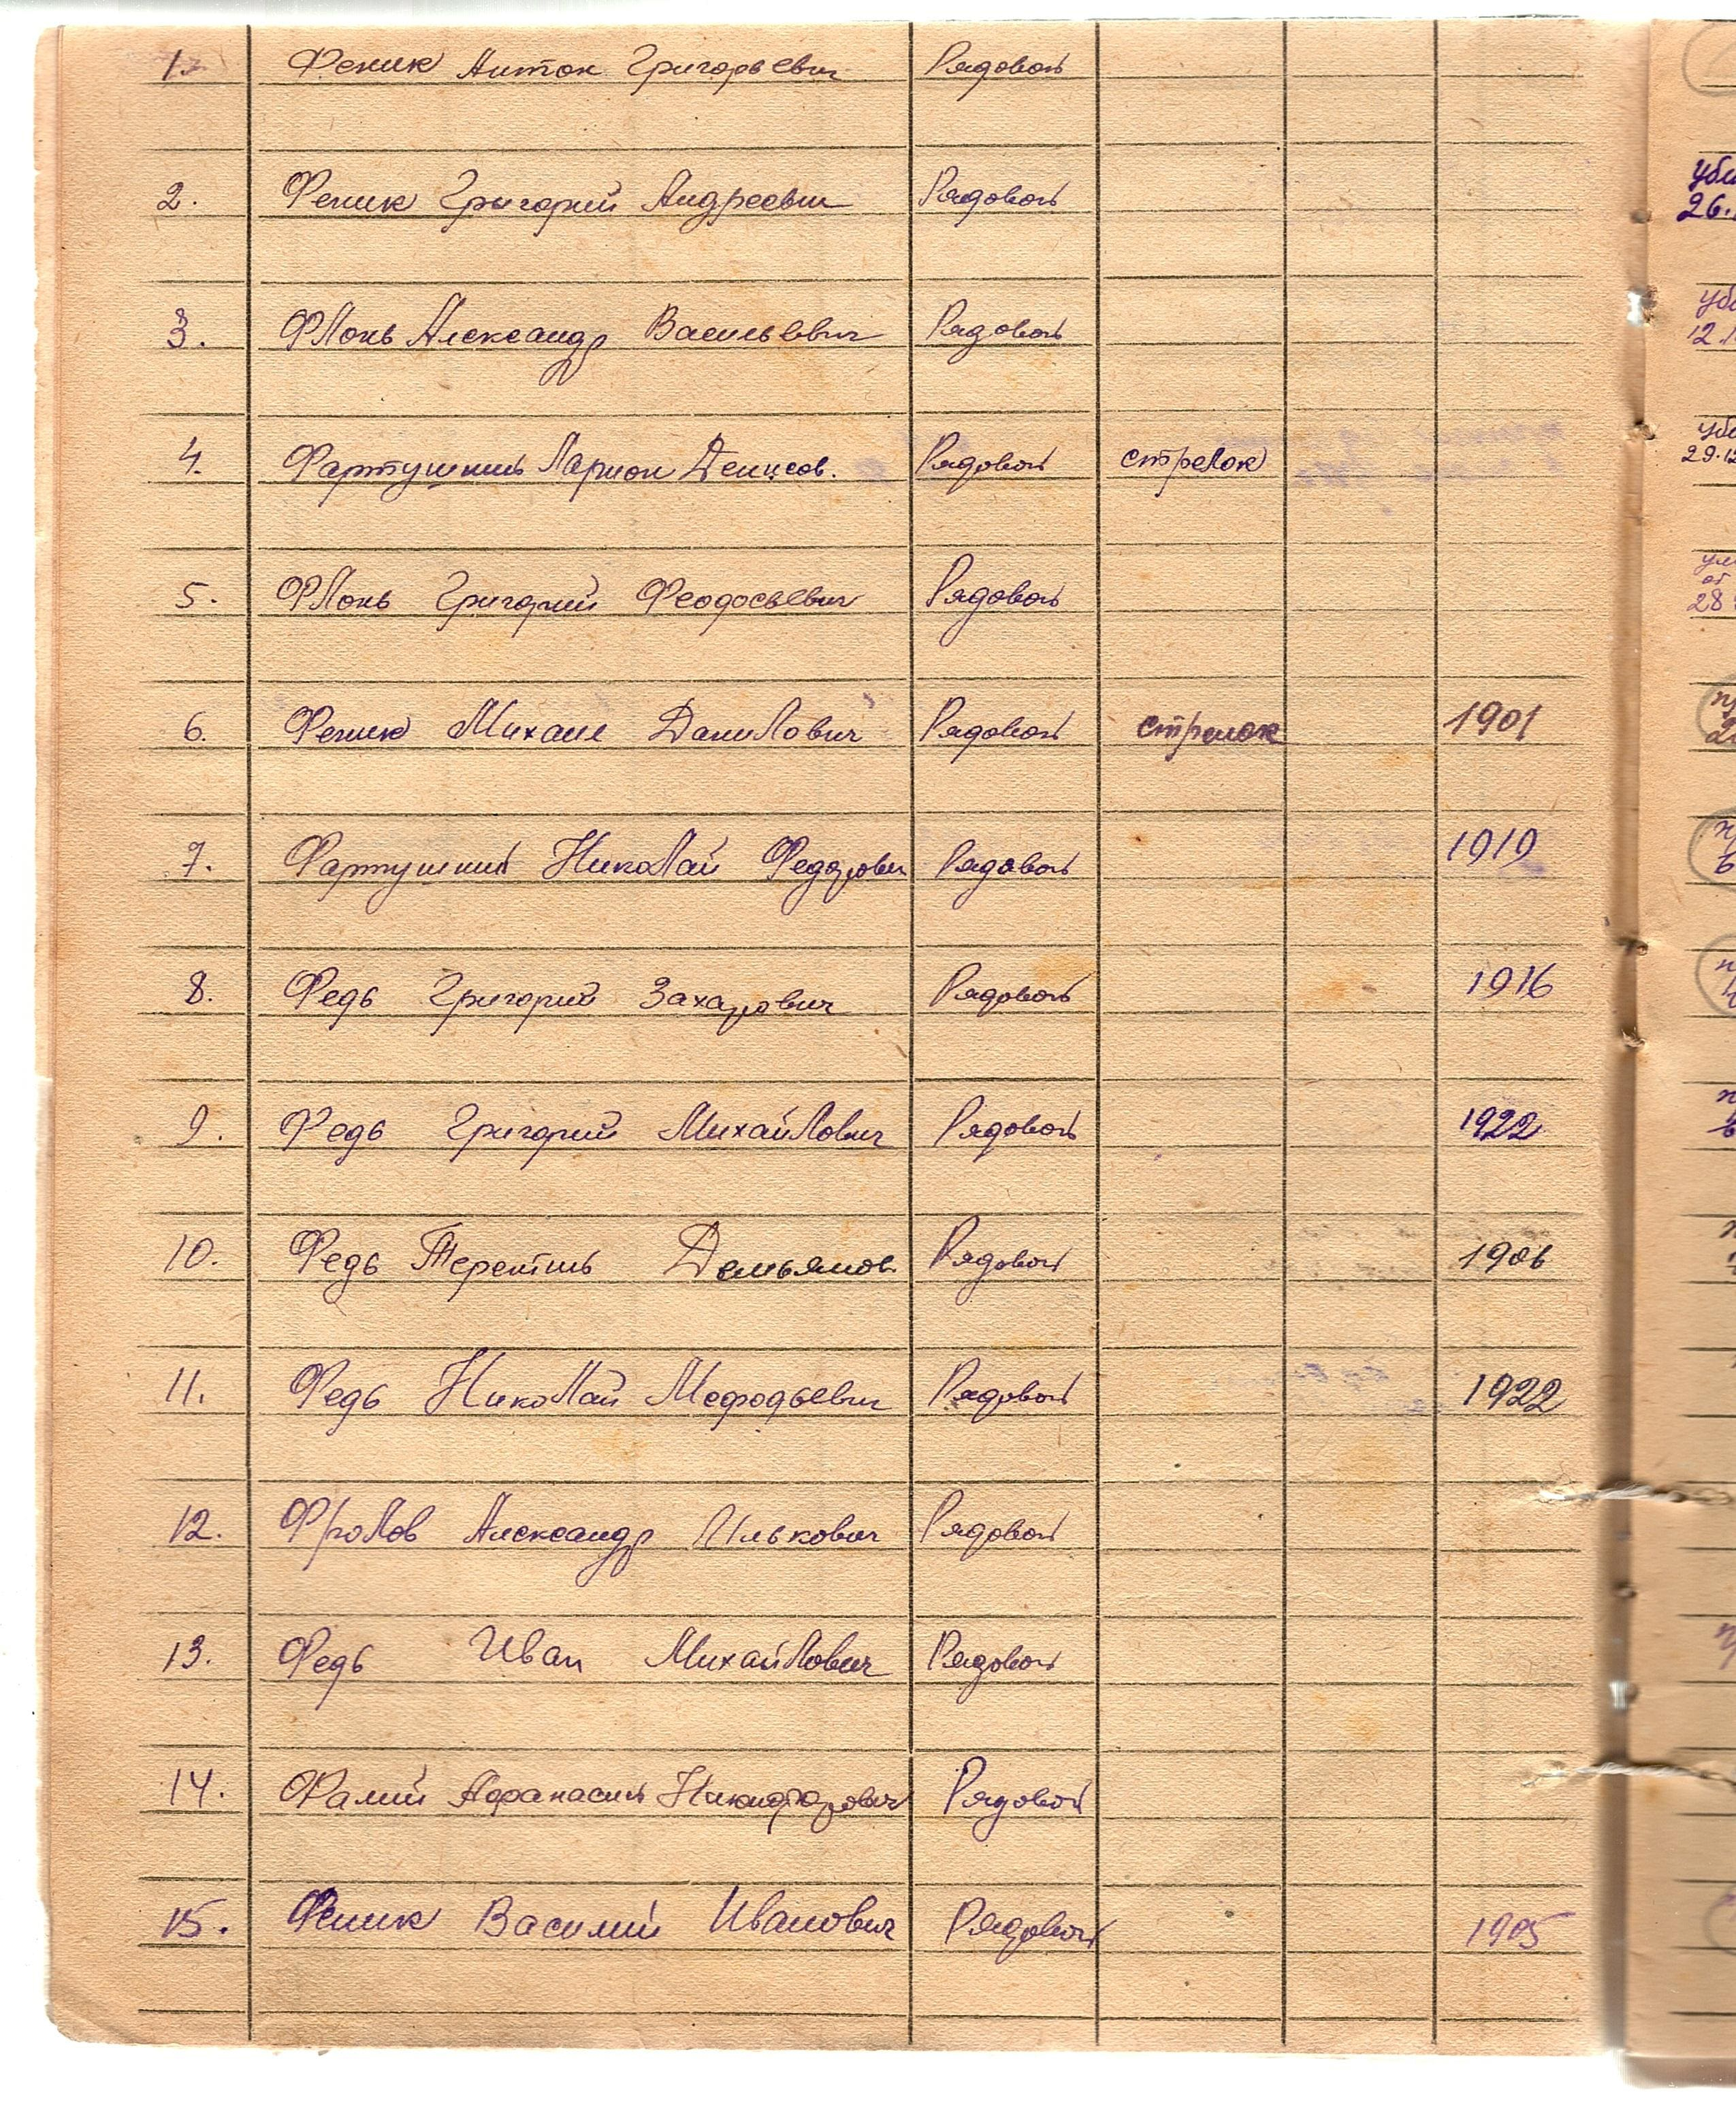 1. Феник Антон Григорьевич Рядовой
2. Феник Григорий Андреевич Рядовой
уби
26.
3. Флонь Александр Васильевич Рядовой
уби
12.
4. Фартушний Ларион Денисов. Рядовой стрелок
уби
29.12
5. Флонь Григорий Феодосьевич Рядовой
от
28
6. Феник Михаил Данилович Рядовой стрелок 1901
7. Фартушний Николай Федорович Рядовой 1919
8. Федь Григорий Захарович Рядовой 1916
9. Федь Григорий Михайлович Рядовой 1922
10. Федь Терентий Демьянов. Рядовой 1906
11. Федь Николай Мефодьевич Рядовой 1922
12. Фролов Александр Илькович Рядовой
13. Федь Иван Михайлович Рядовой
14. Фалий Афанасий Никифорович Рядовой
15. Феник Василий Иванович Рядовой 1905